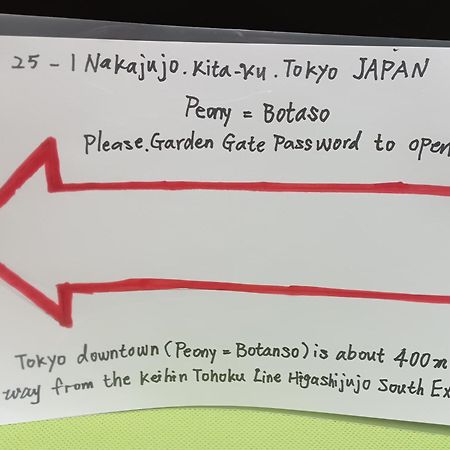 25-1 Nakajujo. Kita-Ku. Tokyo JAPAN
Peony = Botaso
Please. Garden Gate Password to open
Tokyo downtown (Peony = Botanso) is about 400m
way from the Keihin Tohoku Line Higashijujo South Ex